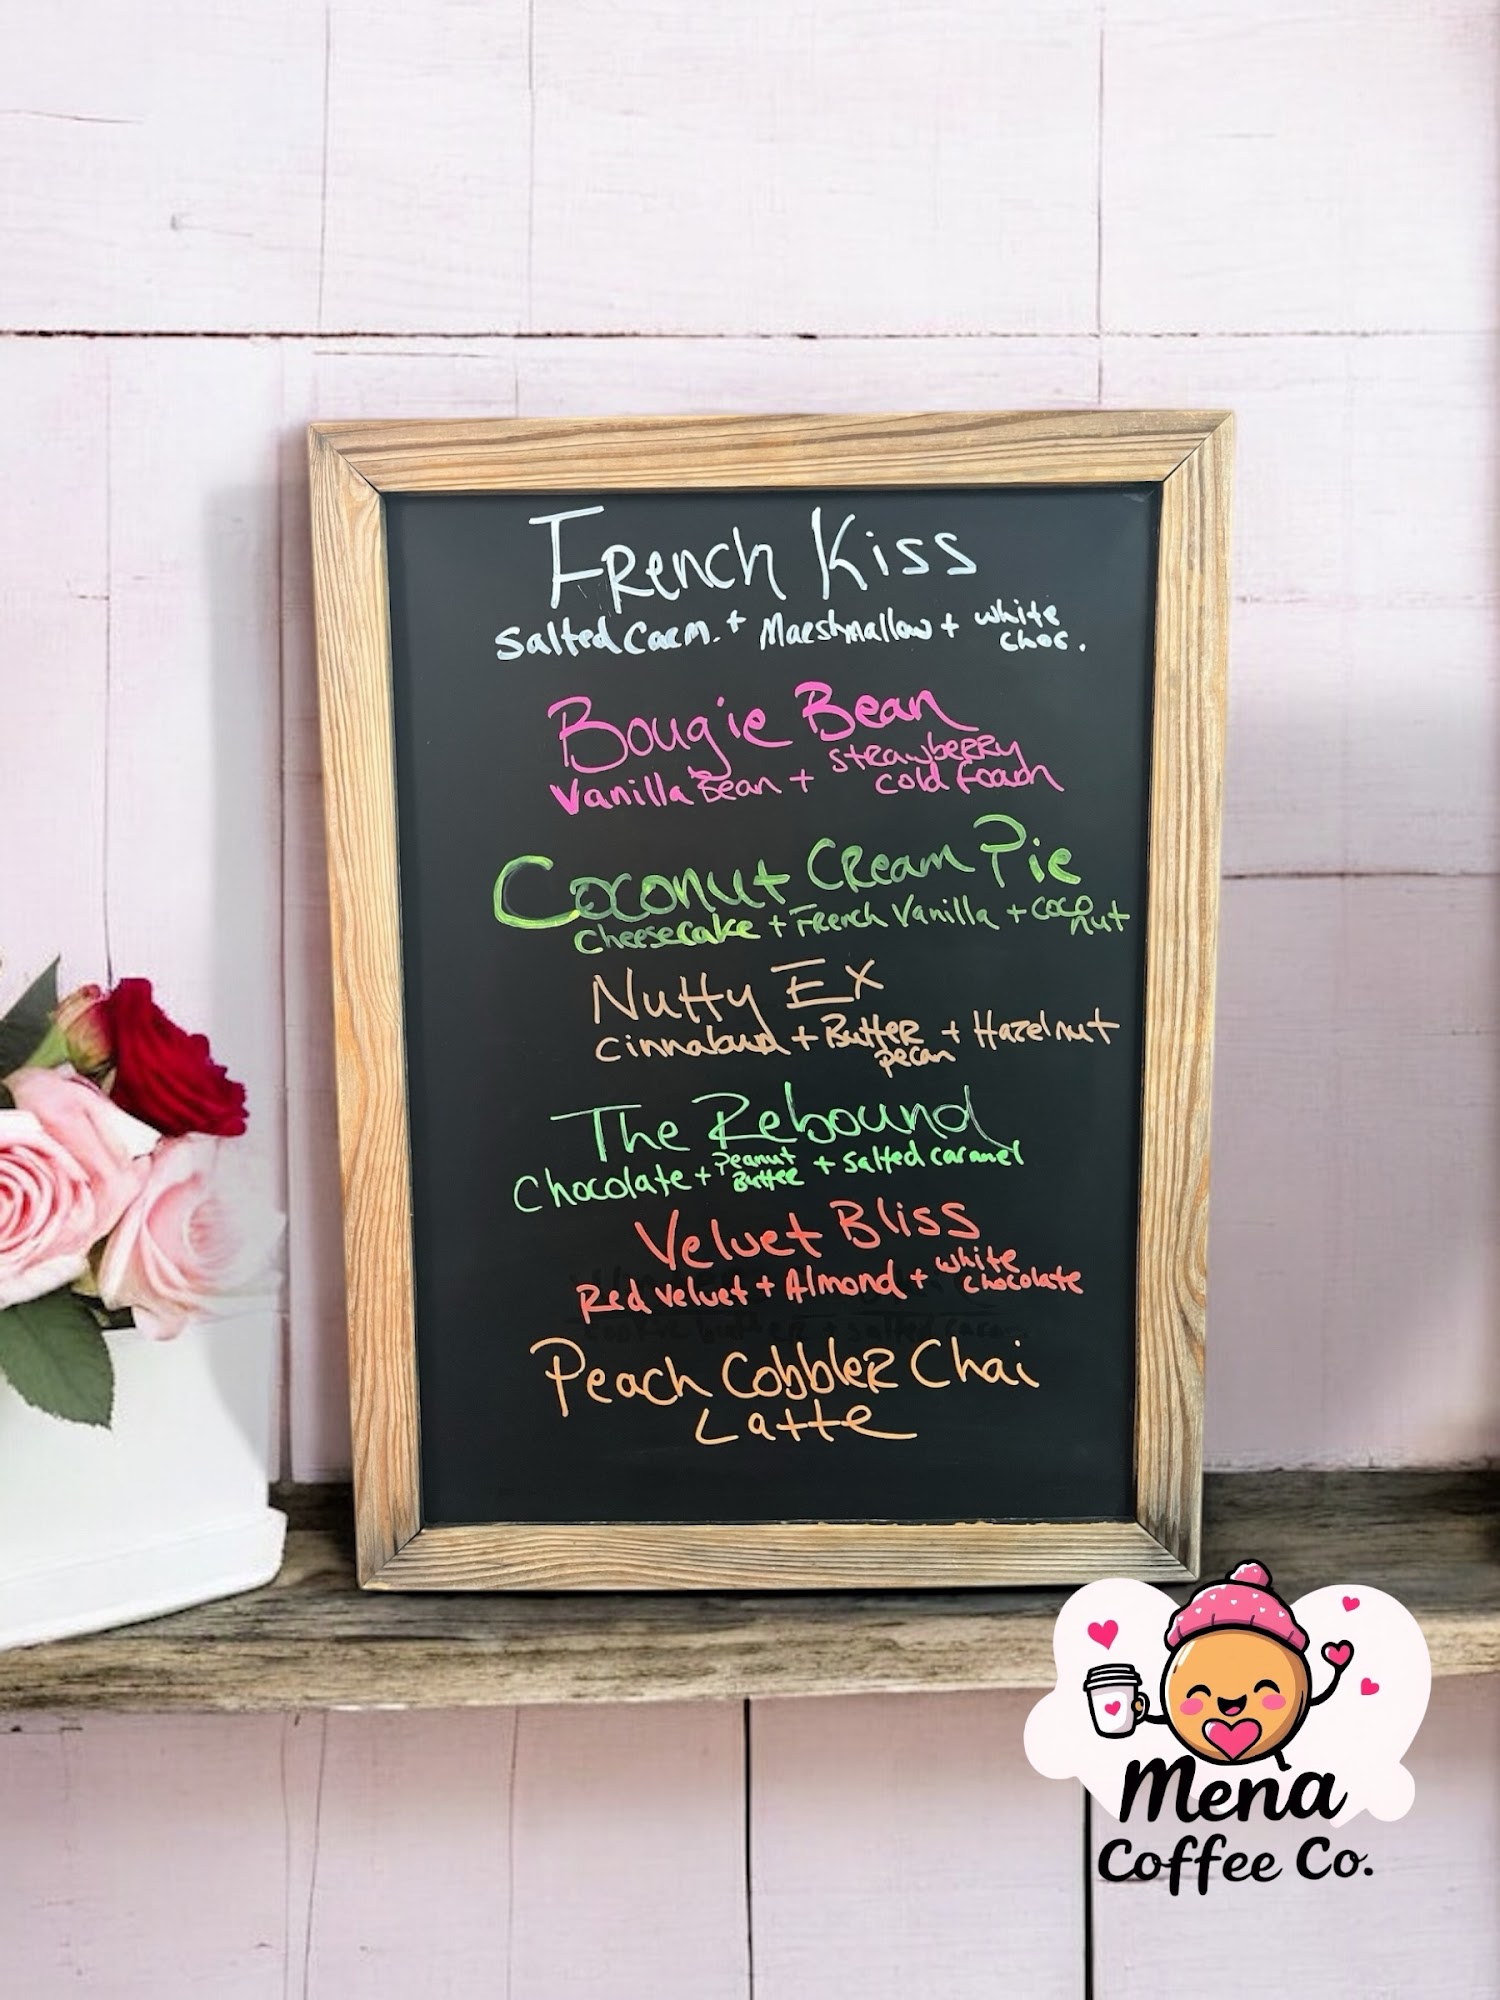 French Kiss
Salted Carm. + Marshmallow + white choc.
Bougie Bean
Vanilla Bean + strawberry cold foam
Coconut Cream Pie
cheesecake + French Vanilla + coconut
Nutty Ex
cinnabun + Butter pecan + Hazelnut
The Rebound
Chocolate + Peanut Butter + salted caramel
Velvet Bliss
Red Velvet + Almond + white chocolate
Peach Cobbler Chai
Latte
Mena
Coffee Co.